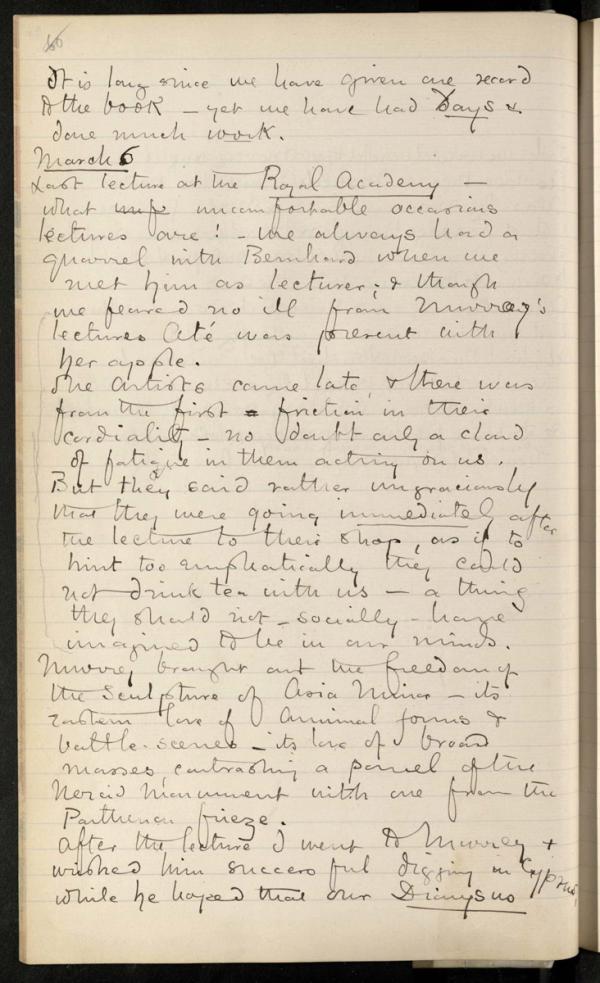 It is long since we have given one record
to the book — yet we have had Days &
done much work.
March 6
Last lecture at the Royal Academy —
what uncomfortable occasions
lectures are! — we always had a
quarrel with Bernhard when we
met him as lecturer; & though
we feared no ill from Murray's
lectures Até was present with
her apple.
The Artists came late, & there was
from the first friction in their
cordiality — no doubt only a cloud
of fatigue in them acting on us.
But they said rather ungraciously
that they were going immediately after
the lecture to their shop, as if to
hint too emphatically they could
not drink tea with us — a thing
they should not — socially — have
imagined to be in our minds.
Murray brought out the freedom of
the Sculpture of Asia Minor — its
Eastern love of Animal forms &
battle-scenes — its love of broad
masses, contrasting a panel of the
Nereid Monument with one from the
Parthenon frieze.
After the lecture I went to Murray &
wished him successful digging in Cyprus,
while he hoped that our Dionysus